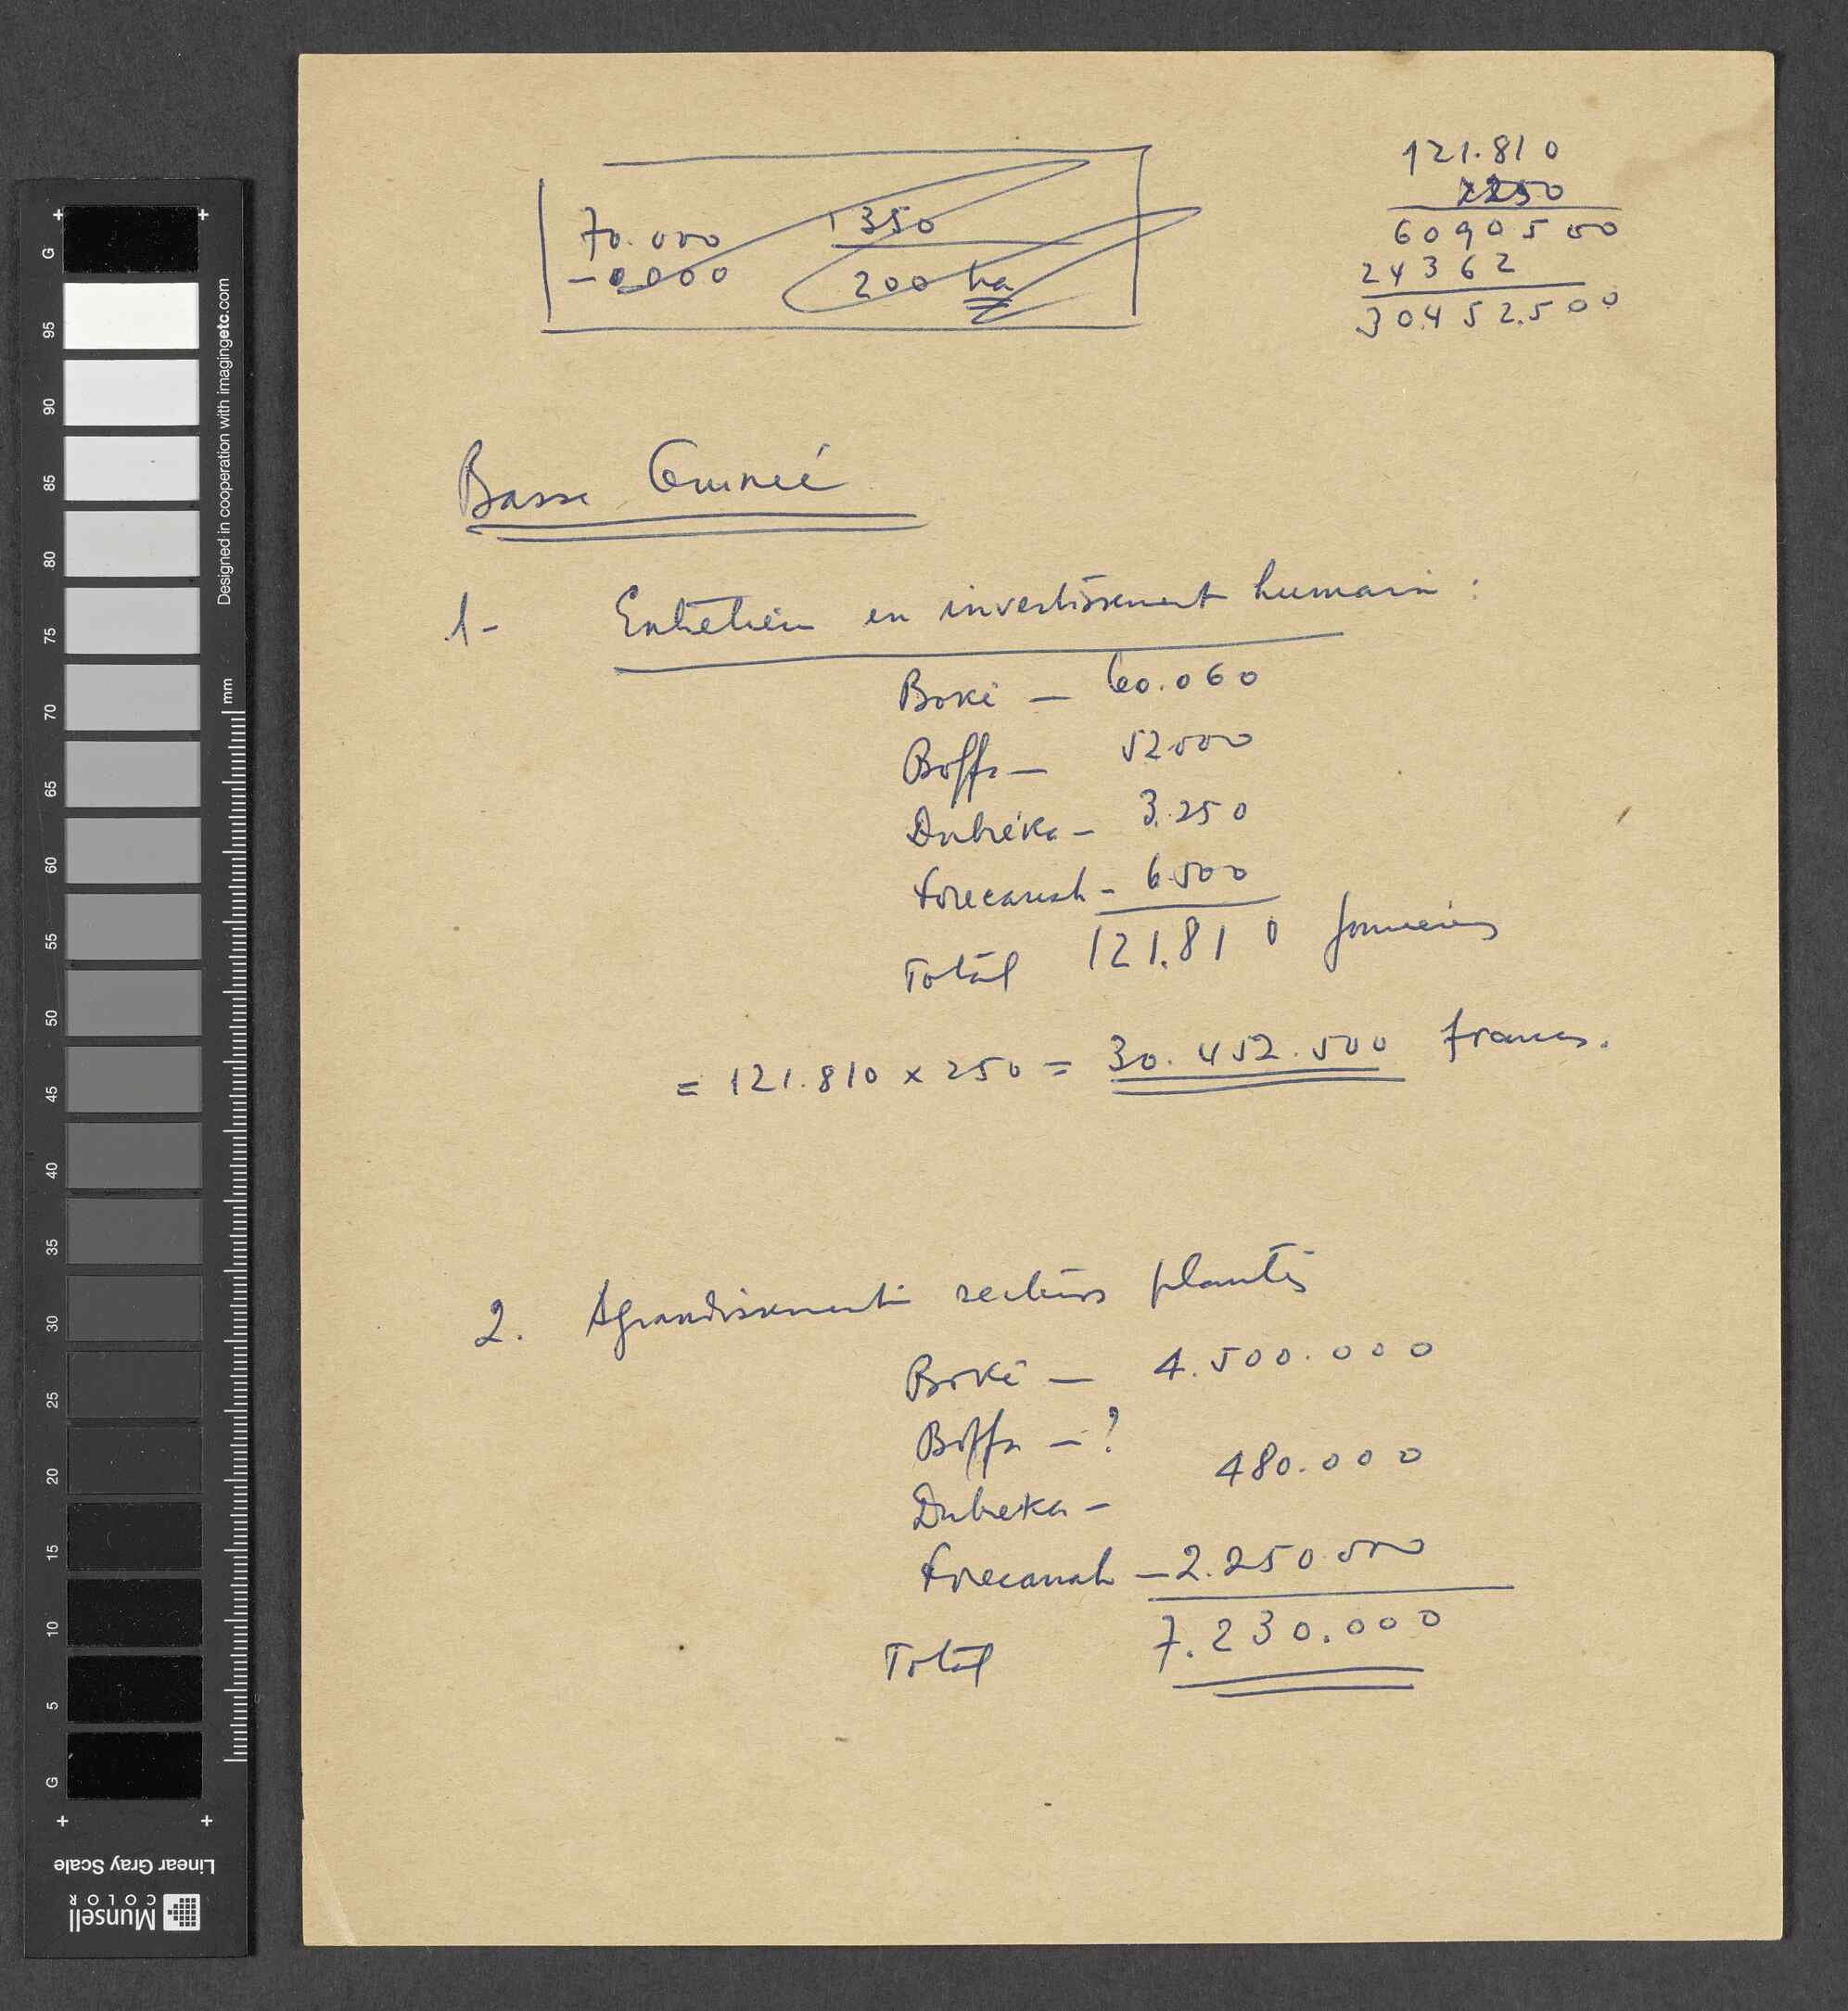 70.000 350
-0000 200 ha
121.810
x250
6090500
24362
30.452.500
Basse Guinée
1- Entretien en investissement humain :
Boké - 60.060
Boffa - 52000
Dubréka - 3.250
Forecariah - 6.500
Total 121.810 journées
= 121.810 x 250 = 30.452.500 francs.
2. Agrandissement secteurs plantés
Boké - 4.500.000
Boffa - ?
Dubreka - 480.000
Forecariah - 2.250.000
Total 7.230.000
G
95
90
85
80
75
70
65
60
55
50
45
40
35
30
25
20
15
10
5
G
Designed in cooperation with imagingetc.com
mm
Linear Gray Scale
Munsell
COLOR